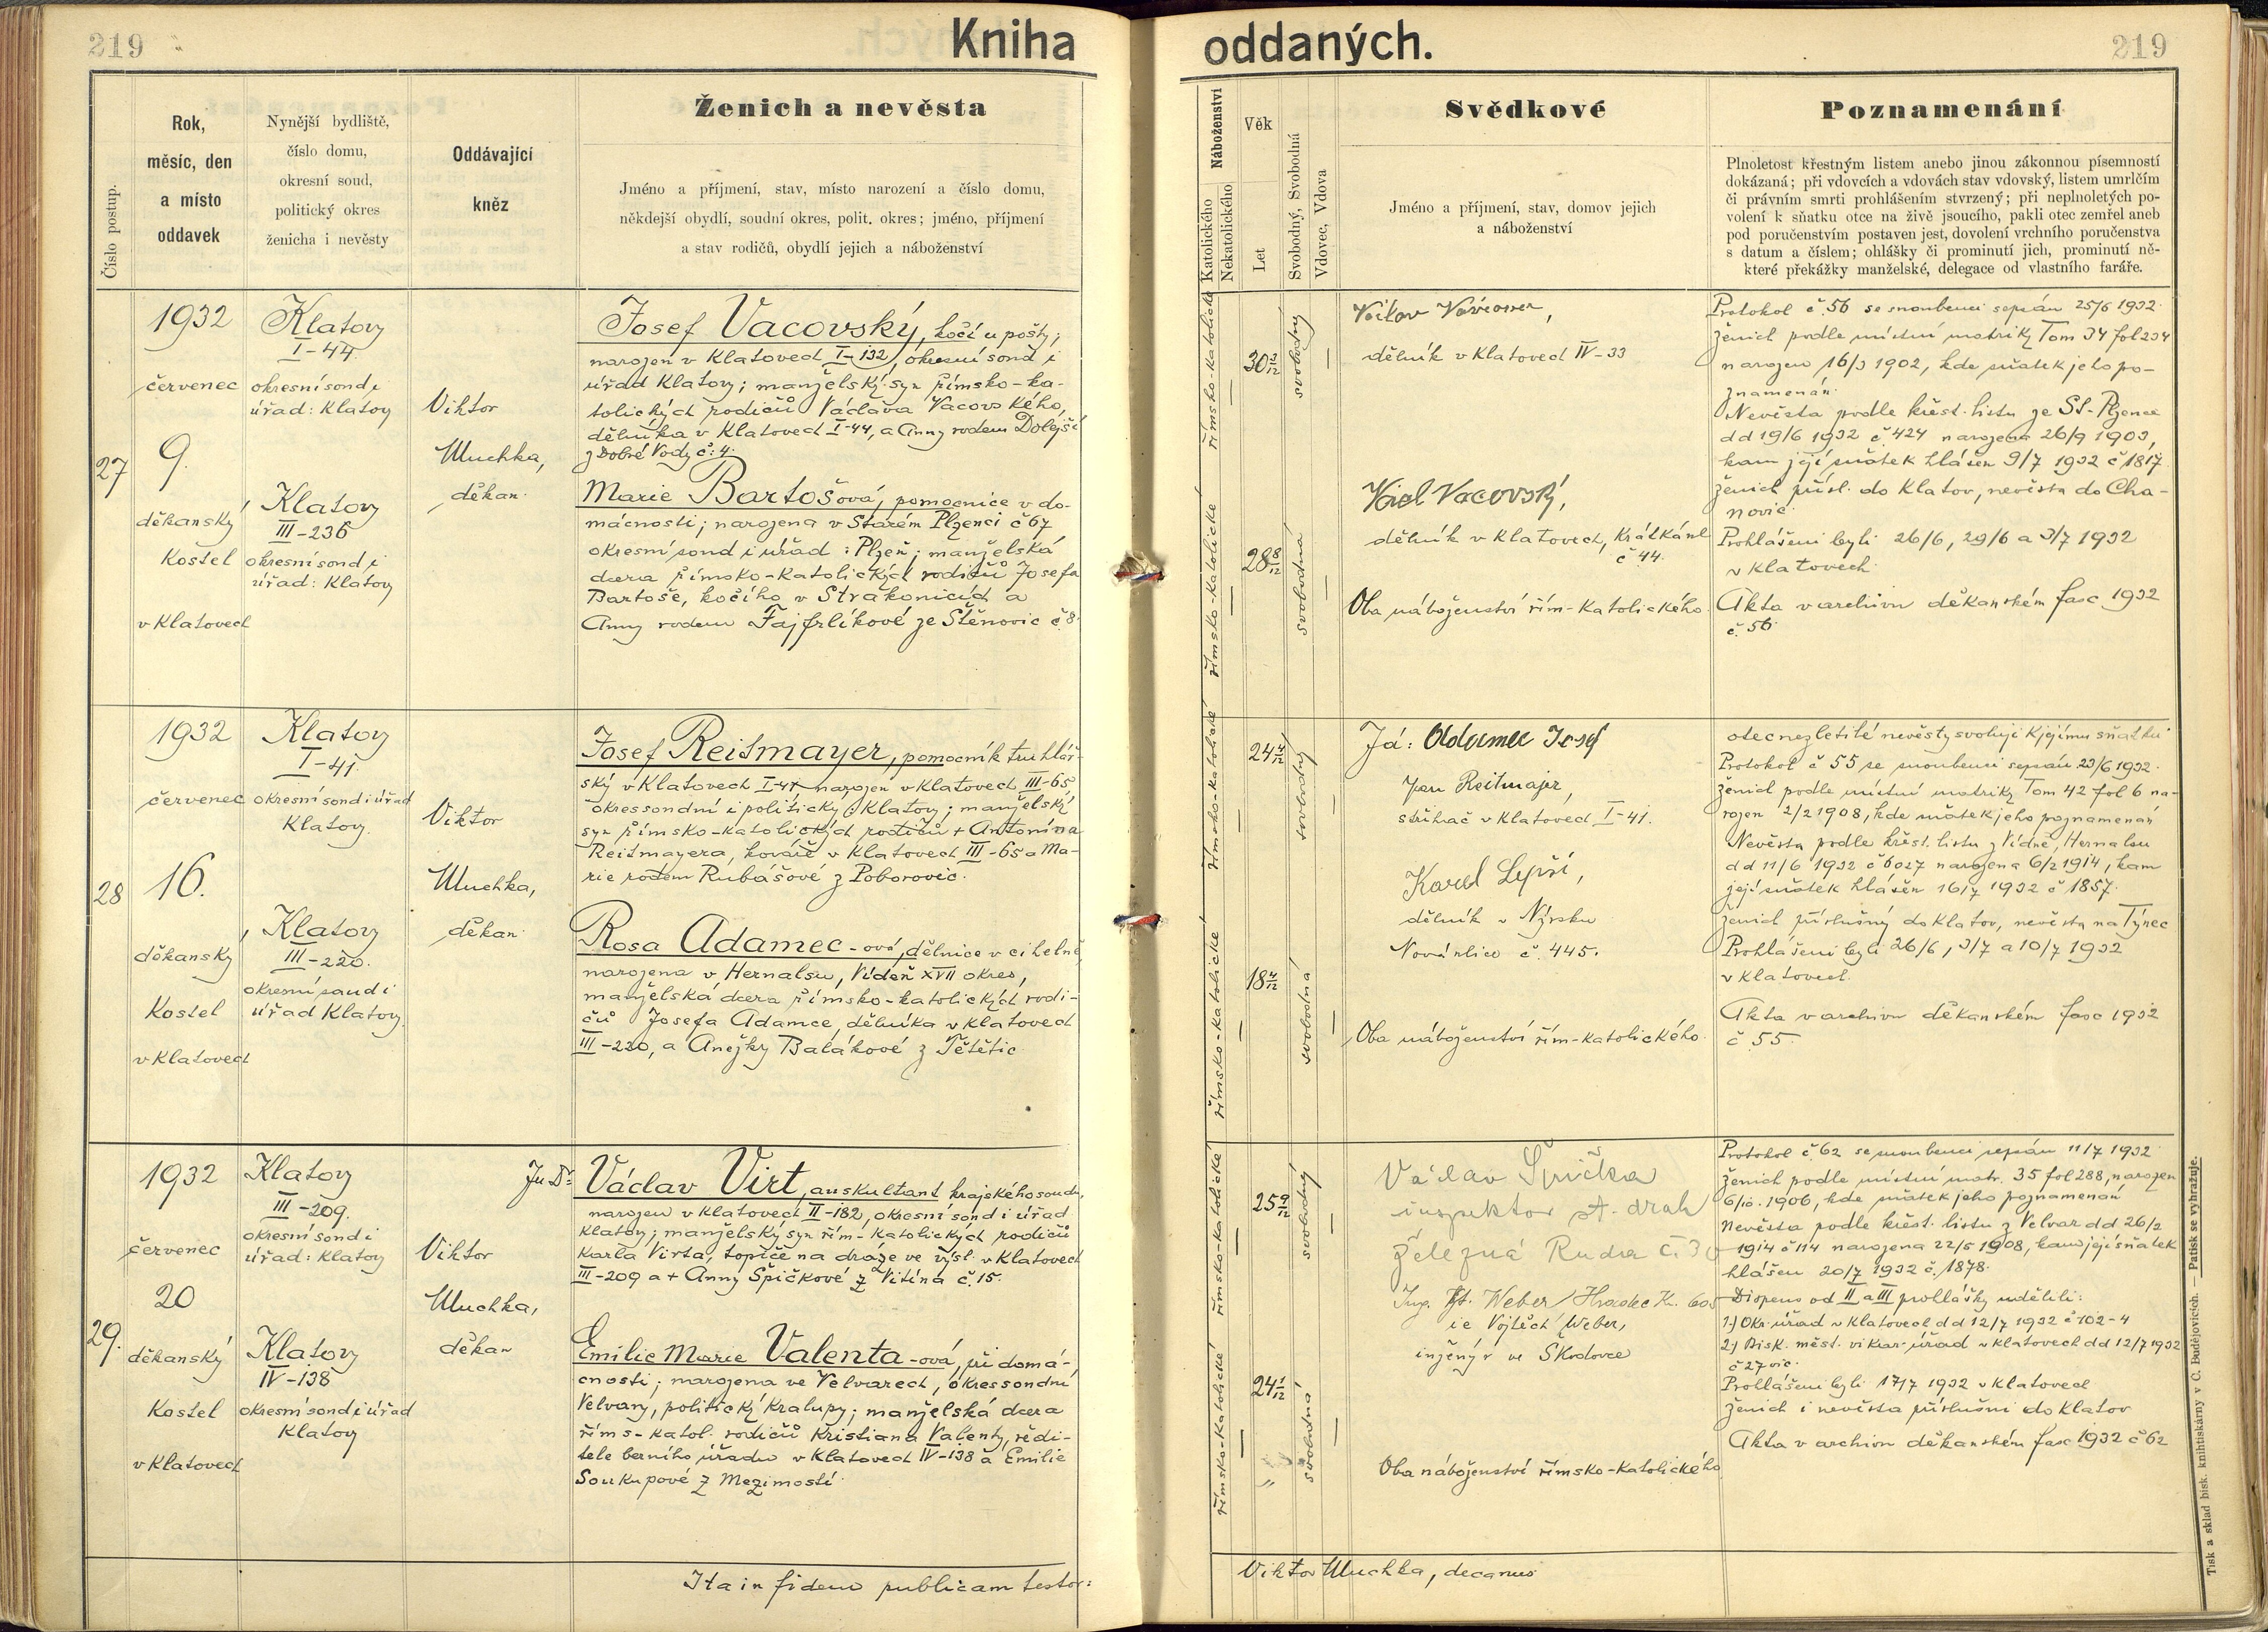 219
Kniha
oddaných.
219
Číslo postup.
Rok,
měsíc, den
a místo
oddavek
Nynější bydliště,
číslo domu,
okresní soud,
politický okres
ženicha i nevěsty
Oddávající
kněz
Ženich a nevěsta
Jméno a příjmení, stav, místo narození a číslo domu,
někdejší obydlí, soudní okres, polit. okres; jméno, příjmení
a stav rodičů, obydlí jejich a náboženství
Náboženství
Katolického
Nekatolického
Věk
Let
Svobodný, Svobodná
Vdovec, Vdova
Svědkové
Jméno a příjmení, stav, domov jejich
a náboženství
Poznamenání
Plnoletost křestným listem anebo jinou zákonnou písemností
dokázaná; při vdovcích a vdovách stav vdovský, listem umrlčím
či právním smrti prohlášením stvrzený; při neplnoletých po-
volení k sňatku otce na živě jsoucího, pakli otec zemřel aneb
pod poručenstvím postaven jest, dovolení vrchního poručenstva
s datum a číslem; ohlášky či prominutí jich, prominutí ně-
které překážky manželské, delegace od vlastního faráře.
27
1932
červenec
9.
děkanský
Kostel
v Klatovech
Klatovy
I-44.
okresní soud i
úřad: Klatovy
Klatovy
III-236
okresní soud i
úřad: Klatovy
Viktor
Muchka,
děkan.
Josef Vacovský, kočí u pošty;
narozen v Klatovech I-132, okresní soud i
úřad Klatovy; manželský syn římsko-ka-
tolických rodičů Václava Vacovského,
dělníka v Klatovech I-44, a Anny rodem Dolejší
z Dobré Vody č. 4.
Marie Bartošová, pomocnice v do-
mácnosti; narozena v Starém Plzenci č 67
okresní soud i úřad: Plzeň; manželská
dcera římsko-katolických rodičů Josefa
Bartoše, kočího v Strakonicích a
Anny rodem Fajfrlíkové ze Štěnovic č 8.
římsko-katolické
římsko-katolické
30
svobodný
28 8/12
svobodná
Václav
dělník v Klatovech IV-33
Karel Vacovský,
dělník v Klatovech,
č 44.
Oba náboženství řím-katolického
Protokol č. 56 se snoubenci sepsán 25/6 1932.
ženich podle místní matriky Tom 34 fol 234
narozen 16/3 1902, kde sňatek jeho po-
znamenán.
Nevěsta podle křest. listu ze St. Plzence
dd 19/6 1932 č. 424 narozena 26/9 1903,
kam její sňatek hlášen 9/7 1932 č 1817.
ženich přísl. do Klatov, nevěsta do Cha-
novic.
Prohlášeni byli 26/6, 29/6 a 3/7 1932
v Klatovech.
Akta v archivu děkanském fasc 1932
č. 56.
28
1932
červenec
16.
děkanský
Kostel
v Klatovech
Klatovy
I-41.
okresní soud i úřad
Klatovy.
Klatovy
III-220.
okresní soud i
úřad Klatovy.
Viktor
Muchka,
děkan.
Josef Reitmayer, pomocník truhlář-
ský v Klatovech I-41, narozen v Klatovech III-65,
okres soudní i politický Klatovy; manželský
syn římsko-katolických rodičů + Antonína
Reitmayera, kováře v Klatovech III-65 a Ma-
rie rodem Rubášové z Poborovic.
Rosa Adamec-ová, dělnice v cihelně,
narozena v Hernalsu, Vídeň XVII okres,
manželská dcera římsko-katolických rodi-
čů Josefa Adamce, dělníka v Klatovech
III-220, a Anežky Balákové z Tětětic.
římsko-katolické
římsko-katolické
24
svobodný
18
svobodná
Já: Adamec Josef
Jan Reitmajer,
v Klatovech I-41.
Karel Lepší,
dělník v Nýrsku
Nová ulice č. 445.
Oba náboženství řím-katolického.
otec nezletilé nevěsty svoluji k jejímu sňatku
Protokol č 55 se snoubenci sepsán 23/6 1932.
ženich podle místní matriky Tom 42 fol 6 na-
rozen 2/2 1908, kde sňatek jeho poznamenán
Nevěsta podle křest. listu z Vídně, Hernalsu
dd 11/6 1932 č 6027 narozena 6/2 1914, kam
její sňatek hlášen 16/7 1932 č 1857.
ženich příslušný do Klatov, nevěsta na Týnec
Prohlášeni byli 26/6, 3/7 a 10/7 1932
v Klatovech.
Akta v archivu děkanském fasc 1932
č. 55.
29.
1932
červenec
20
děkanský
Kostel
v Klatovech
Klatovy
III-209.
okresní soud i
úřad: Klatovy
Klatovy
IV-138
okresní soud i úřad
Klatovy
Viktor
Muchka,
děkan
JuDr.
Václav Virt, auskultant krajského soudu,
narozen v Klatovech II-182, okresní soud i úřad
Klatovy; manželský syn řím-katolických rodičů
Karla Virta, topiče na dráze ve výsl. v Klatovech
III-209 a + Anny Špičkové z Vitína č. 15.
Emilie Marie Valenta-ová, při domá-
cnosti; narozena ve Velvarech, okres soudní
Velvary, politický Kralupy; manželská dcera
říms-katol. rodičů Kristiana Valenty, ředi-
tele berního úřadu v Klatovech IV-138 a Emilie
Soukupové z Mezimostí.
římsko-katolické
římsko-katolické
25 9/12
svobodný
24 1/12
svobodná
Václav Špička
inspektor st. drah
Železná Ruda č. 30
Ing. Vjt. Weber, Hradec Kr. 605
ie Vojtěch Weber,
inženýr ve Škodovce
Oba náboženství římsko-katolického
Protokol č. 62 se snoubenci sepsán 11/7 1932.
ženich podle místní matr. 35 fol 288, narozen
6/10. 1906, kde sňatek jeho poznamenán
Nevěsta podle křest. listu z Velvar dd 26/2
1914 č 114 narozena 22/5 1908, kam její sňatek
hlášen 20/7 1932 č. 1878.
Dispens od II a III prohlášky udělili:
1.) Okr. úřad v Klatovech dd 12/7 1932 č 102-4
2.) Bisk. měst. vikar. úřad v Klatovech dd 12/7 1932
č 27 vic.
Prohlášeni byli 17/7 1932 v Klatovech
ženich i nevěsta příslušni do Klatov
Akta v archivu děkanském fasc 1932 č 62
Ita in fidem publicam testor:
Viktor Muchka, decanus
Tisk a sklad bisk. knihtiskárny v Č. Budějovicích. — Patisk se vyhražuje.